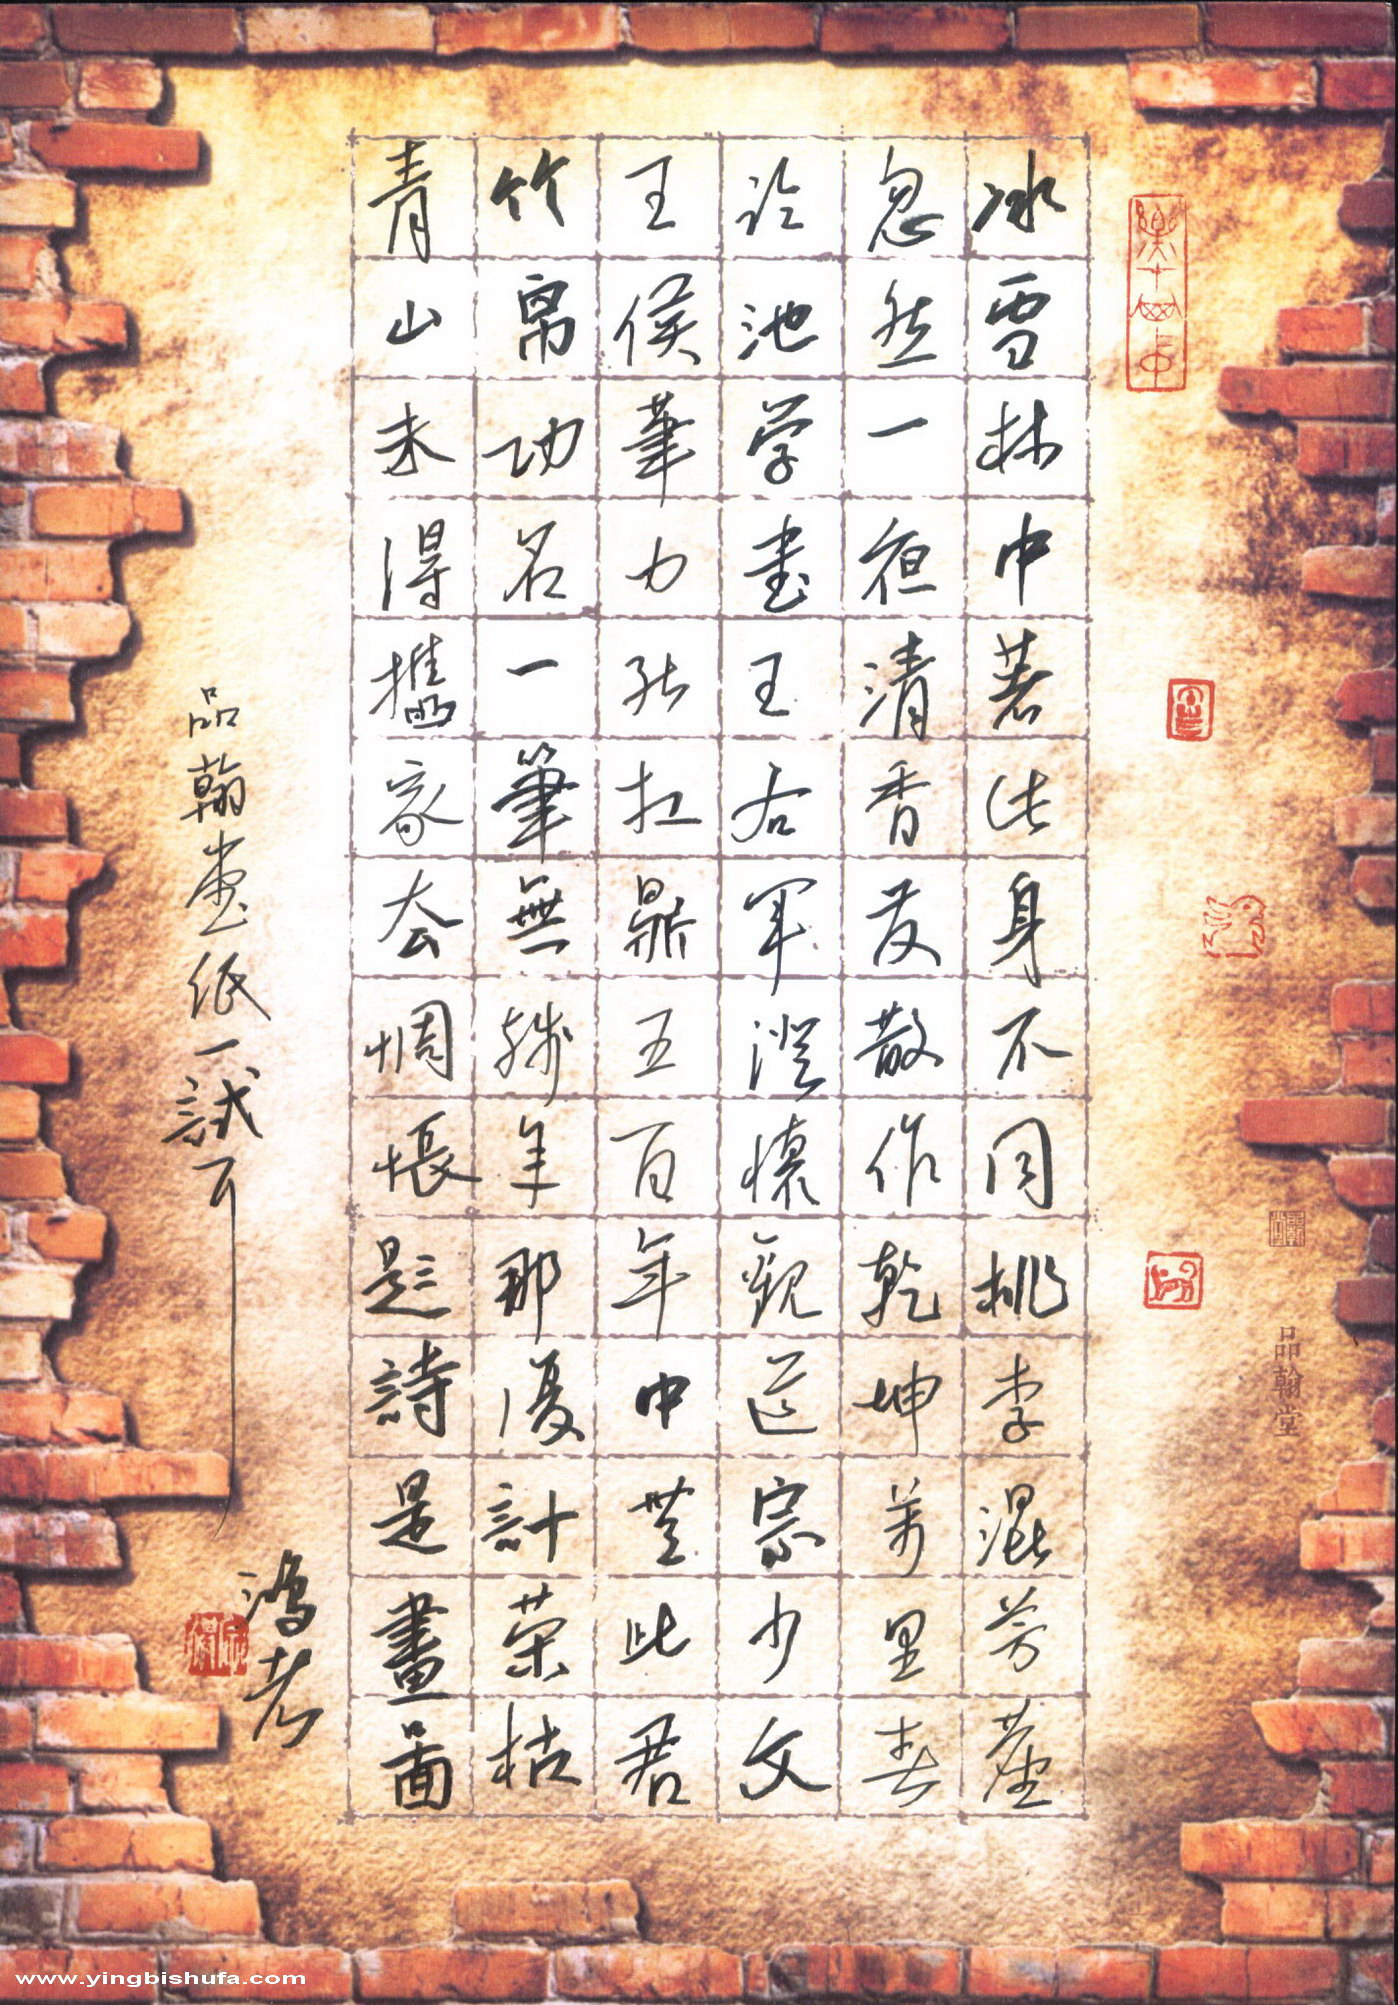 冰雪林中著此身不同桃李混芳塵
忽然一夜清香發散作乾坤萬里春
臨池学書王右軍澄懷觀道宗少文
王侯筆力能扛鼎五百年中無此君
竹帛功名一筆無殘年那復計榮枯
青山未得攜家去惆悵題詩是畫圖
品翰堂紙一試可
鴻老
品翰堂
www.yingbishufa.com